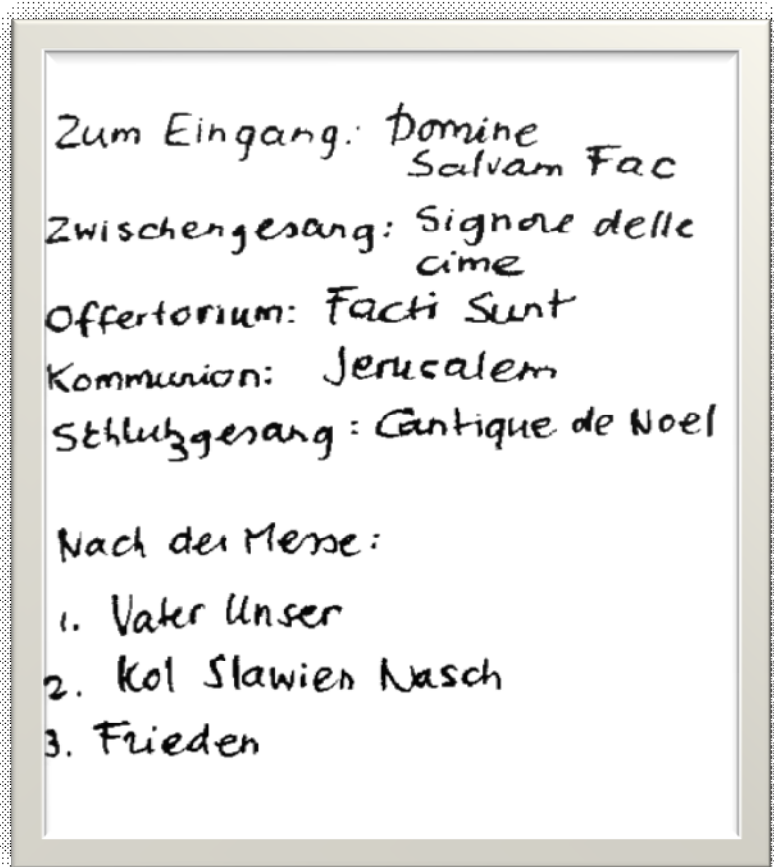 Zum Eingang: Domine
Salvam Fac
Zwischengesang: Signore delle
cime
Offertorium: Facti Sunt
Kommunion: Jerusalem
Schlußgesang: Cantique de Noel
Nach der Messe:
1. Vater Unser
2. Kol Slawien Nasch
3. Frieden